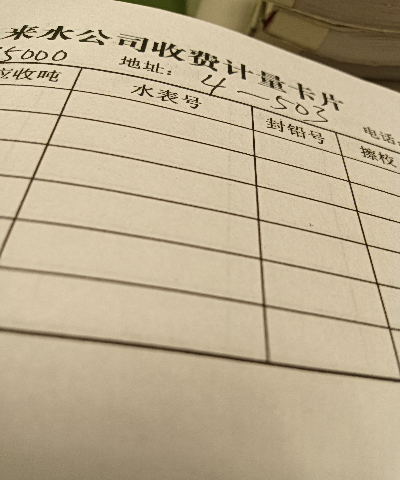 来水公司收费计量卡片
5000 地址: 4-503 电话
应收吨 水表号 封铅号 擦校